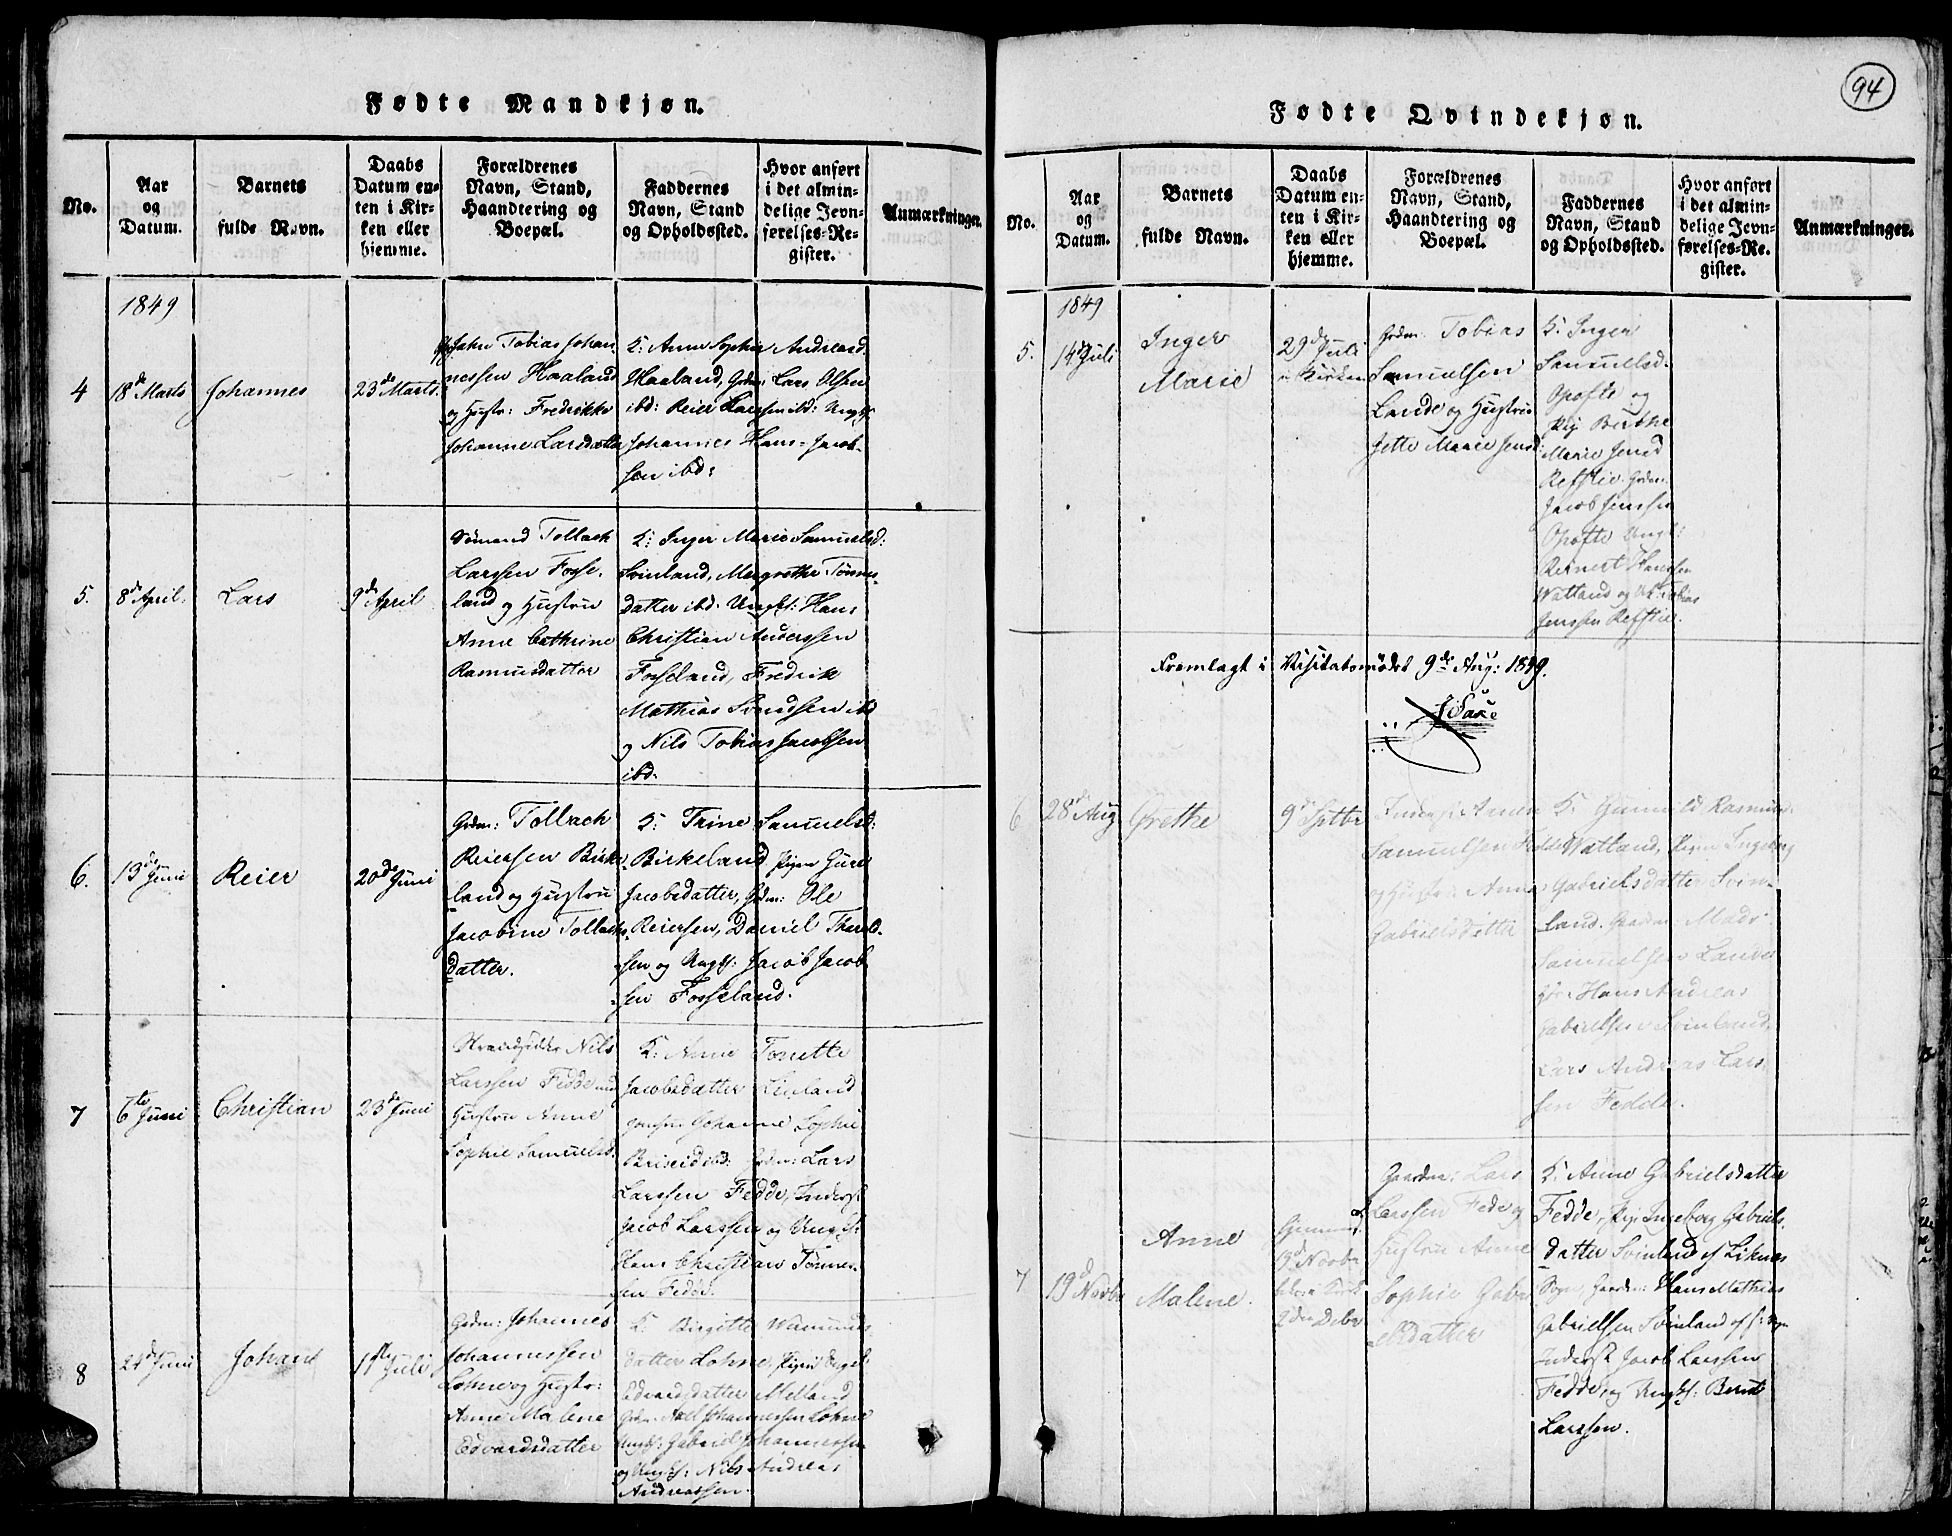 Fødte Mandkjøn.
No.
Aar
og
Datum.
Barnets
fulde Navn.
Daabs
Datum en-
ten i Kir-
ken eller
hjemme.
Forældrenes
Navn, Stand,
Haandtering og
Boepæl.
Faddernes
Navn, Stand
og Opholdssted.
Hvor anført
i det almin-
delige Jevn-
førelses-Re-
gister.
Anmærkninger.
1849
4
18de Marts
Johannes
23de Marts.
John Tobias Johan-
nessen Haaland
og Hustr: Fredrikke
Johanne Larsdatter
K: Anne Sophie Andreasd.
Haaland, Grdm: Lars Olsen
ibd: Reier Larssen ibd: Ungk:
Johannes Hans-Jacob-
sen ibd:
5.
8de April.
Lars
9de April
Sømand Tollach
Larssen Fosse-
land og Hustru
Anne Cathrine
Rasmusdatter
K: Inger Marie Samuelsd:
Svinland, Margrethe Tønnes-
datter ibd. Ungk: Hans
Christian Anderssen
Fosseland, Fredrik
Mathias Svendsen ibd
og Nils Tobias Jacobsen
ibd.
6.
13de Juni
Reier
20de Juni
Grdm: Tollach
Reierssen Birke-
land og Hustru
Jacobine Tollachs-
datter.
K: Trine Samuelsd:
Birkeland, Pigen Guro
Jacobsdatter, Grdm: Ole
Reiersen, Daniel Thorkd-
sen og Ungk: Jacob Jacob-
sen Fosseland.
7
6te Juni
Christian
23de Juni
Strandsidder Nils
Larssen Fedde med
Hustru Anne
Sophie Samuelsd.
K: Anne Tonette
Jacobsdatter
Johanne Sophie
ibd: Grdm: Lars
Larssen Fedde, Inderst
Jacob Larssen og Ungk:
Hans Christian Tønnes-
sen Fedde.
8
21de Juni
Johan
11te Juli
Grdm: Johannes
Johannessen
Lohne og Hustr:
Anne Malene
Edvardsdatter
K. Birgitte
datter Lohne, Pigen Ingeb.
Edvardsdatter Melland
Grdm: Axel Johannessen Lohne
Ungk: Gabriel Johannessen
og Ungk: Nils Andreas
Andreassen.
94
Fødte Qvindekjøn.
No.
Aar
og
Datum.
Barnets
fulde Navn.
Daabs
Datum en-
ten i Kir-
ken eller
hjemme.
Forældrenes
Navn, Stand,
Haandtering og
Boepæl.
Faddernes
Navn, Stand
og Opholdssted.
Hvor anført
i det almin-
delige Jevn-
førelses-Re-
gister.
Anmærkninger.
1849
5.
14de Juli
Inger
Marie
29de Juli
i Kirken
Grdm. Tobias
Samuelsen
Lande og Hustru
Jette Marie Jensd:
K: Inger
Samuelsd.
Opofte og
Pig Birthe
Marie Jensd
Refstie. Grdm:
Jacob Jenssen
Opofte Ungk:
Reinert Hanssen
Watland og Uk Tobias
Jenssen Refstie.
Fremlagt i Visitatsmødet 9de Aug: 1849.
6
28de Aug
Grethe
9de Sptbr
Inderst Arnen
Samuelsen Fedde
og Hustr: Anne
Gabrielsdatter
K. Gunnild Rasmus-
Watland, Pigen Ingeborg
Gabrielsdatter Svin-
land. Gaardm: Mads
Samuelsen Lande
Hans Andreas
Gabrielsen Svinland,
Lars Andreas Lars-
sen Fedde.
7
19de Novbr
Anne
Malene.
Hjemmed.
9de Novbr
i Kirk
2den Debr
Gaardm: Lars
Larssen Fede og
Hustru Anne
Sophie Gabri-
elsdatter
K. Anne Gabrielsdatter
Fedde, Pige Ingeborg Gabriels-
datter Svinland af Liknes
Sogn, Gaardm: Hans Mathias
Gabrielsen Svinland af s: Sogn
Inderst Jacob Larssen
Fedde og Ungk: Berent
Larssen.